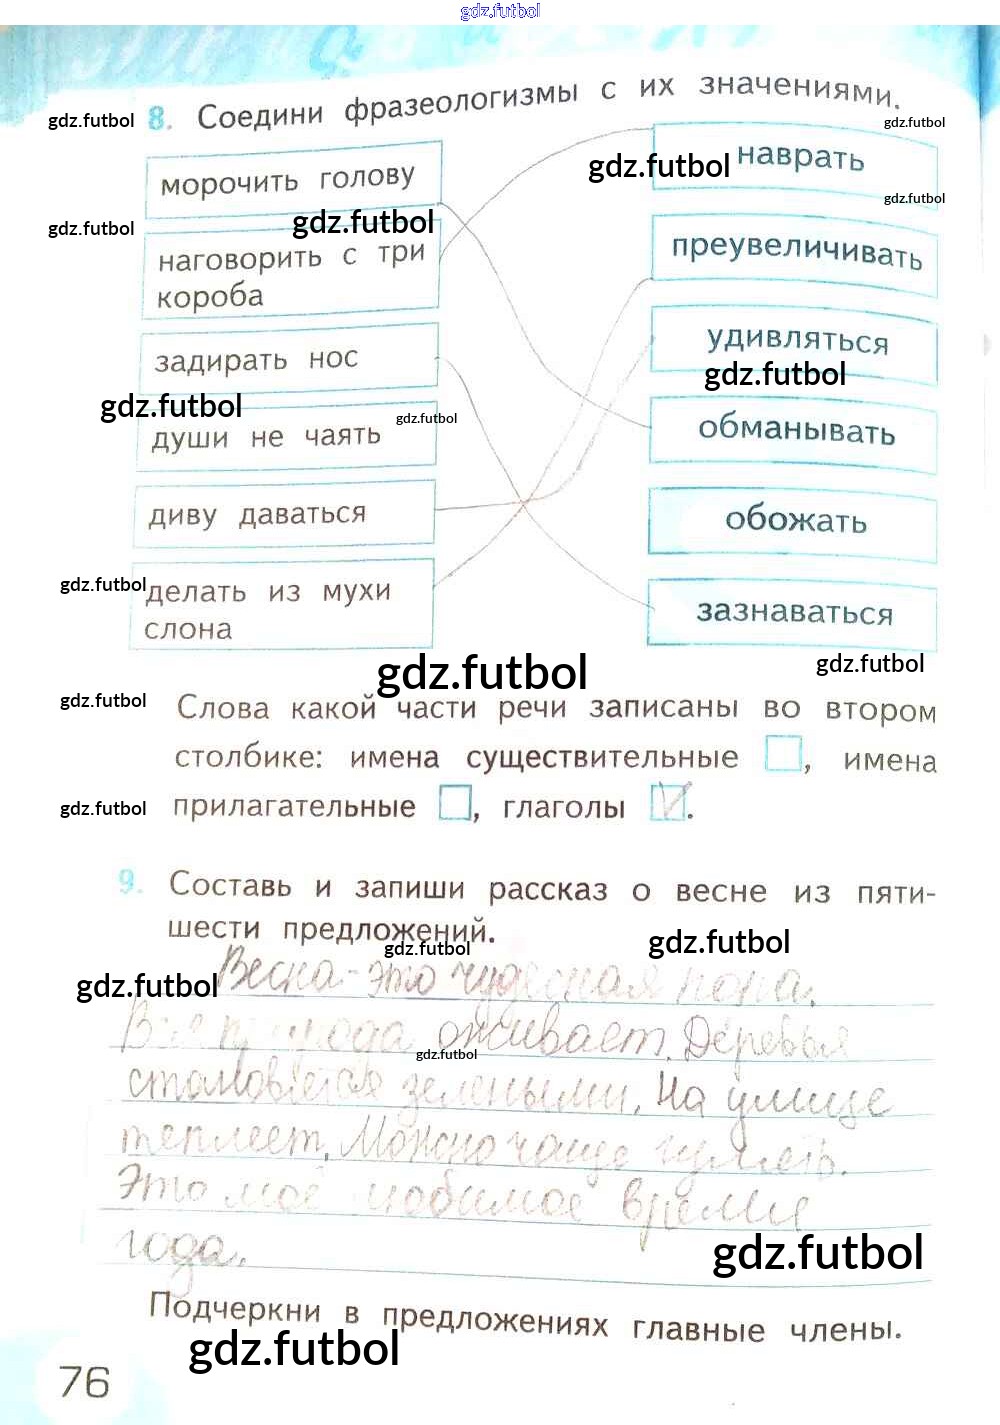 gdz.futbol
8. Соедини фразеологизмы с их значениями.
gdz.futbol
gdz.futbol
морочить голову
наврать
gdz.futbol
gdz.futbol
gdz.futbol
gdz.futbol
наговорить с три
короба
преувеличивать
задирать нос
удивляться
gdz.futbol
gdz.futbol
gdz.futbol
души не чаять
обманывать
диву даваться
обожать
gdz.futbol
делать из мухи
слона
зазнаваться
gdz.futbol
gdz.futbol
gdz.futbol
Слова какой части речи записаны во втором
столбике: имена существительные , имена
gdz.futbol
прилагательные , глаголы V.
9. Составь и запиши рассказ о весне из пяти-
шести предложений.
gdz.futbol
gdz.futbol
gdz.futbol
Весна - это чудесная пора.
Вся природа оживает. Деревья
gdz.futbol
становятся зелеными. На улице
теплеет. Можно чаще гулять.
Это моё любимое время
года.
gdz.futbol
Подчеркни в предложениях главные члены.
gdz.futbol
76